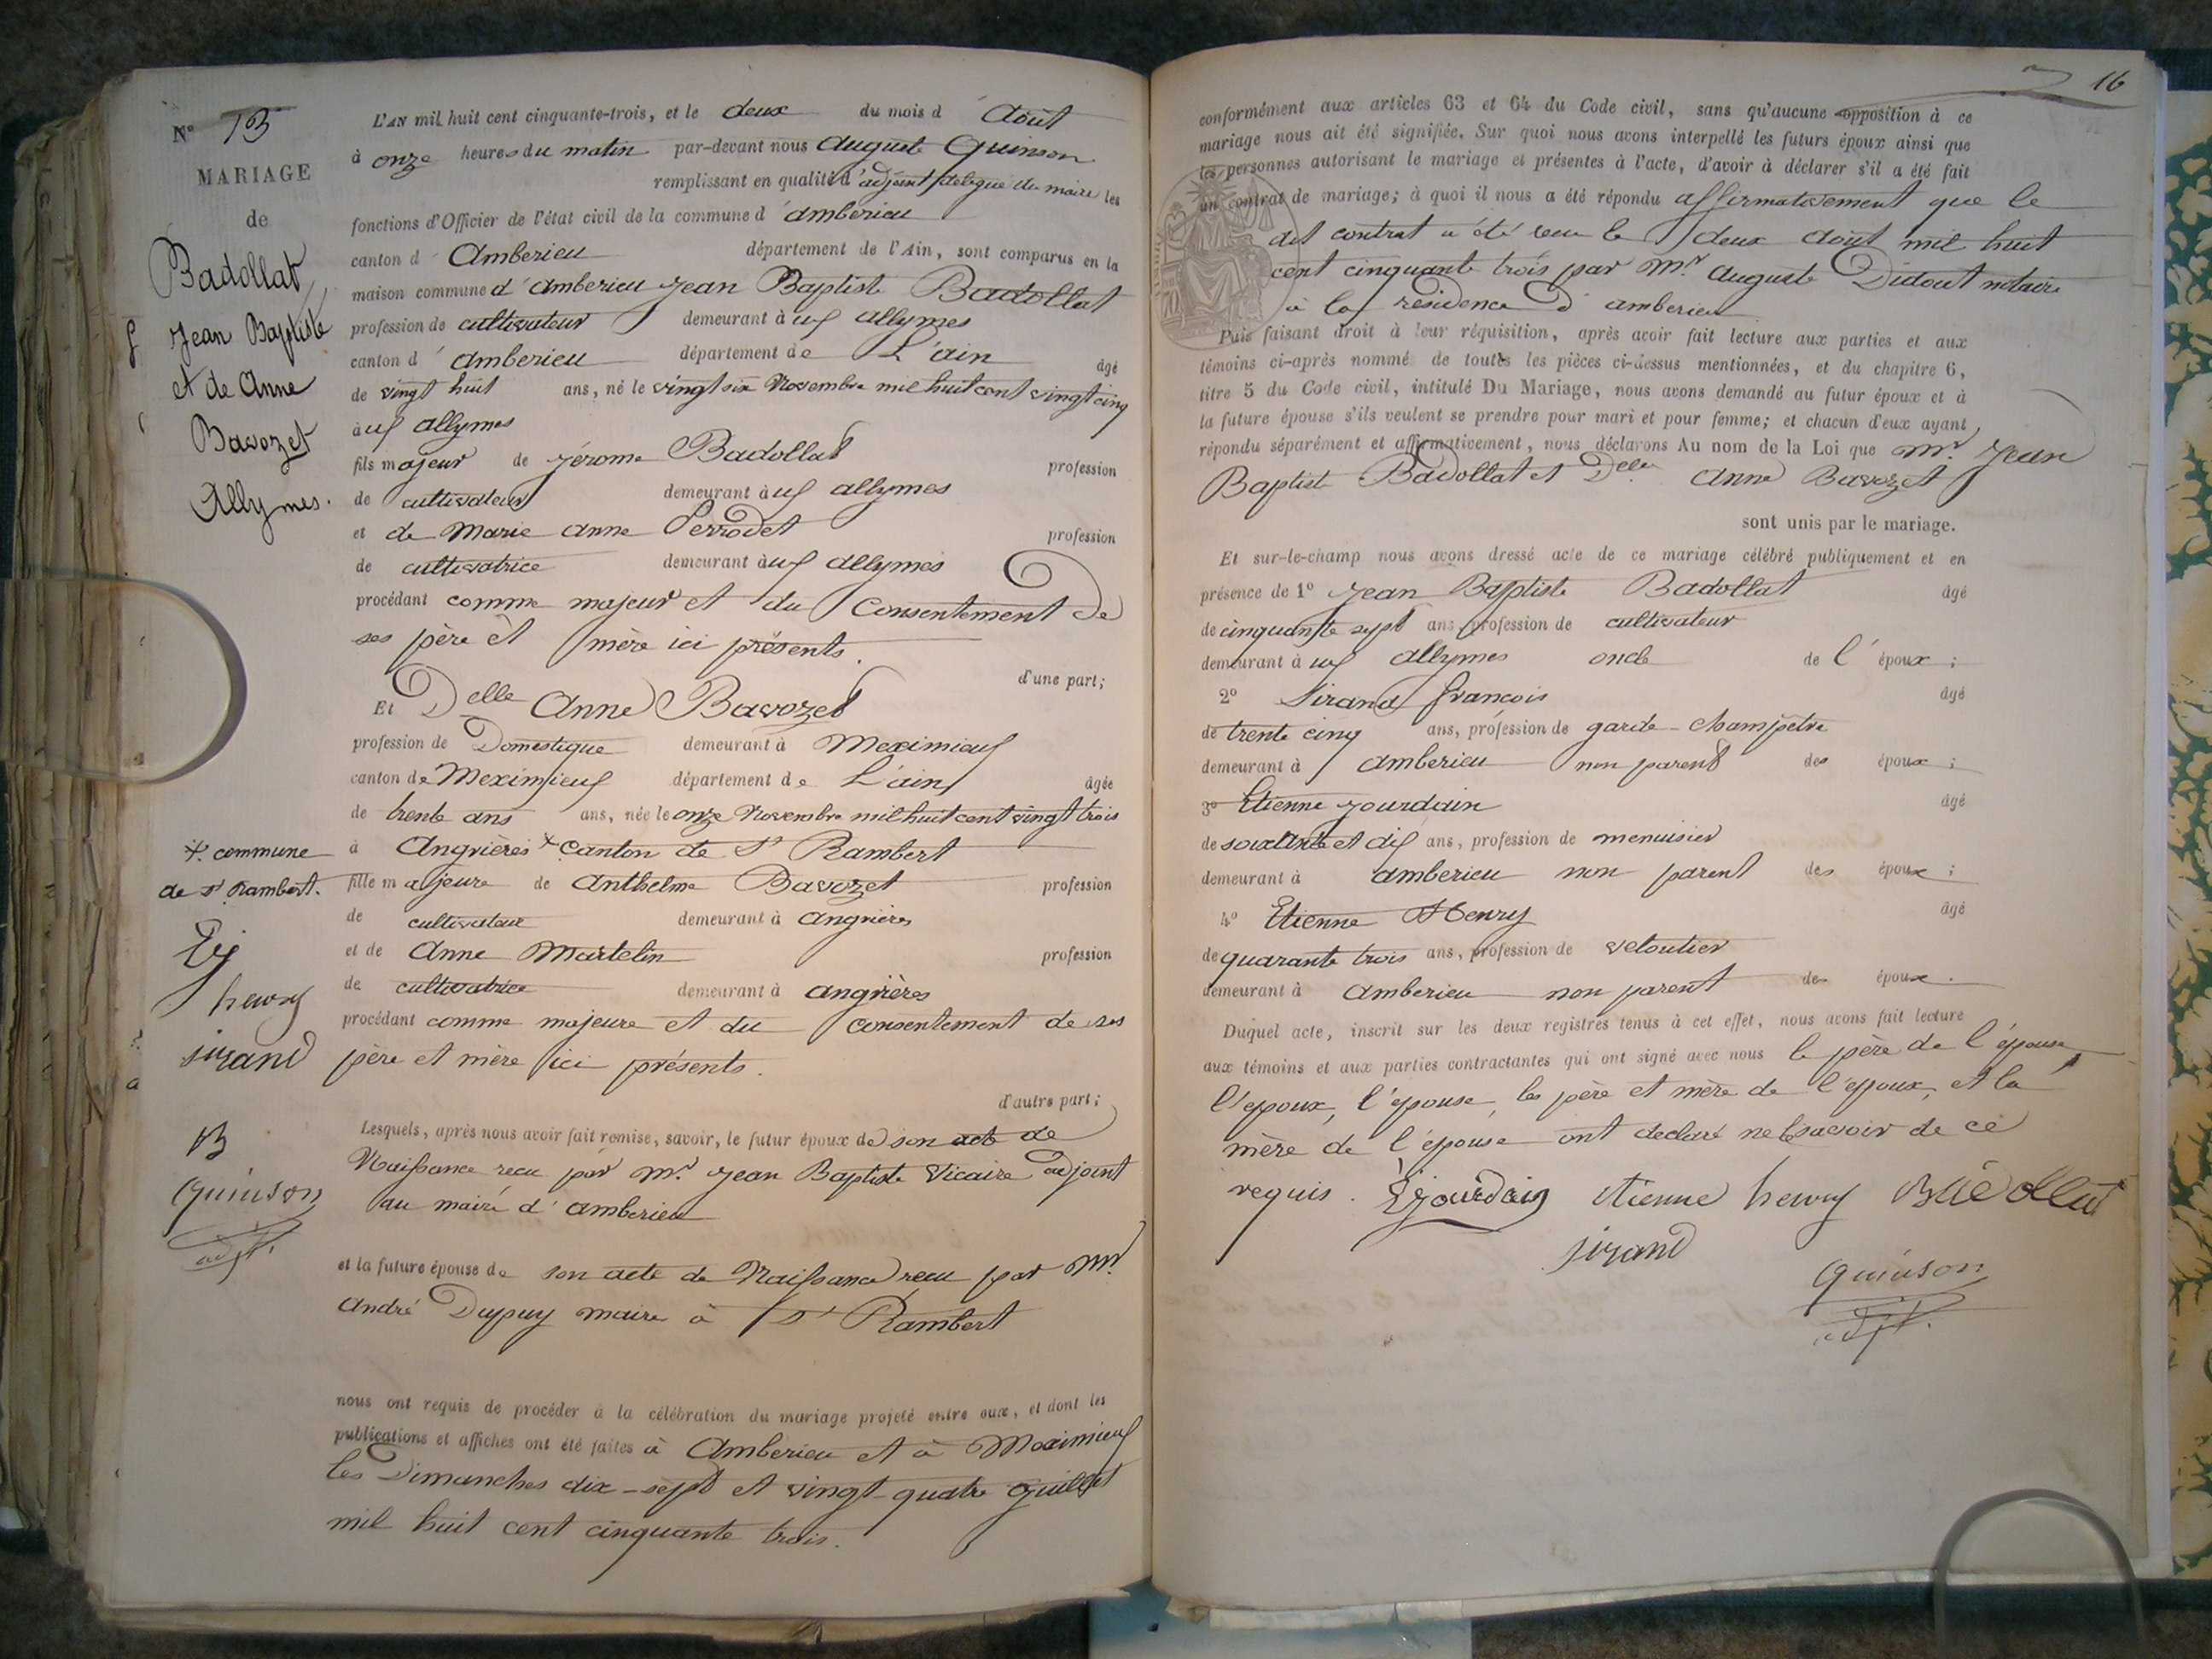 16
N° 13
MARIAGE
de
Badollat
Jean Baptiste
et de Anne
Bavozet
Allymes.
L'AN mil huit cent cinquante-trois, et le deux du mois d Août
à onze heures du matin par-devant nous Auguste Quinson
remplissant en qualité d'adjoint délégué du maire les
fonctions d'Officier de l'état civil de la commune d'amberieu
canton d'Amberieu département de l'Ain, sont comparus en la
maison commune d'amberieu Jean Baptiste Badollat
profession de cultivateur demeurant à ux allymes
canton d'amberieu département de L'ain âgé
de vingt huit ans, né le vingt six Novembre mil huit cent vingt cinq
à ux allymes
fils majeur de Jérome Badollat profession
de cultivateur demeurant à ux allymes
et de Marie Anne Perrodet profession
de cultivatrice demeurant à ux allymes
procédant comme majeur et du consentement de
ses père et mère ici présents.
d'une part;
Et Delle Anne Bavozet
profession de Domestique demeurant à Meximieux
canton de Meximieux département de L'ain âgée
de trente ans ans, née le onze Novembre mil huit cent vingt trois
à Angrières + Canton de St Rambert
+. commune
de St Rambert.
fille majeure de Anthelme Bavozet profession
de cultivateur demeurant à angrières
et de Anne Martelin profession
de cultivatrice demeurant à angrières
procédant comme majeure et du consentement de ses
père et mère ici présents.
d'autre part;
Ej
henry
sirand
B
Quinson
adjt.
Lesquels, après nous avoir fait remise, savoir, le futur époux de son acte de
Naissance recu par Mr. Jean Baptiste Vicaire adjoint
au maire d'amberieu
et la future épouse de son acte de Naissance recu par Mr.
André Dupuy maire à St Rambert
nous ont requis de procéder à la célébration du mariage projeté entre eux, et dont les
publications et affiches ont été faites à Amberieu et à Meximieux
les Dimanches dix-sept et vingt-quatre Juillet
mil huit cent cinquante trois.
conformément aux articles 63 et 64 du Code civil, sans qu'aucune opposition à ce
mariage nous ait été signifiée. Sur quoi nous avons interpellé les futurs époux ainsi que
les personnes autorisant le mariage et présentes à l'acte, d'avoir à déclarer s'il a été fait
un contrat de mariage; à quoi il nous a été répondu affirmativement que le
dit contrat a été recu le deux août mil huit
cent cinquante trois par Mr. Auguste Didout notaire
à la résidence d'amberieu
Puis faisant droit à leur réquisition, après avoir fait lecture aux parties et aux
témoins ci-après nommés de toutes les pièces ci-dessus mentionnées, et du chapitre 6,
titre 5 du Code civil, intitulé Du Mariage, nous avons demandé au futur époux et à
la future épouse s'ils veulent se prendre pour mari et pour femme; et chacun d'eux ayant
répondu séparément et affirmativement, nous déclarons Au nom de la Loi que Mr. Jean
Baptiste Badollat et Delle Anne Bavozet
sont unis par le mariage.
Et sur-le-champ nous avons dressé acte de ce mariage célébré publiquement et en
présence de 1° Jean Baptiste Badollat âgé
de cinquante sept ans, profession de cultivateur
demeurant à ux allymes oncle de l'époux;
2° Sirand francois âgé
de trente cinq ans, profession de garde-champetre
demeurant à amberieu non parent des époux;
3° Etienne Jourdain âgé
de soixante et dix ans, profession de menuisier
demeurant à amberieu non parent des époux;
4° Etienne Henry âgé
de quarante trois ans, profession de veloutier
demeurant à Amberieu non parent des époux.
Duquel acte, inscrit sur les deux registres tenus à cet effet, nous avons fait lecture
aux témoins et aux parties contractantes qui ont signé avec nous le père de l'épouse,
l'epoux, l'épouse, les père et mère de l'époux, et la
mère de l'épouse ont declaré ne le savoir de ce
requis. E Jourdain etienne henry Badollat
sirand
Quinson
adjt.